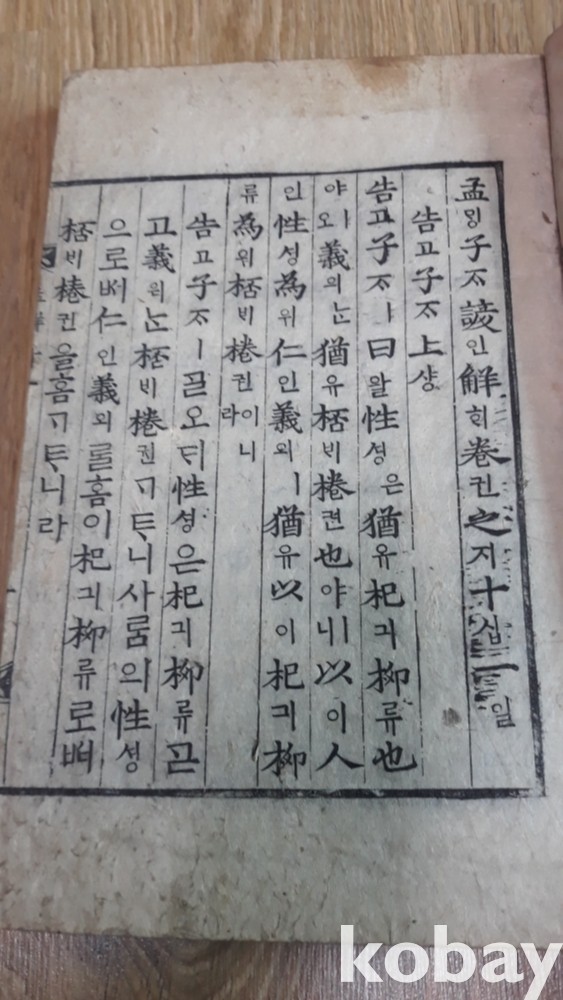 孟ᄆᆡᆼ子ᄌᆞ諺언解ᄒᆡ卷권之지十십一일
告고子ᄌᆞ上샹
告고子ᄌᆞㅣ曰왈性셩은猶유杞긔柳류也
야오義의ᄂᆞᆫ猶유桮ᄇᆡ棬권也야ㅣ니以이人
인性셩為위仁인義의ㅣ猶유以이杞긔柳
류為위桮ᄇᆡ棬권이니라
告고子ᄌᆞㅣᄀᆞᆯ오ᄃᆡ性셩은杞긔柳류ᄀᆞᆮ
고義의ᄂᆞᆫ桮ᄇᆡ棬권ᄀᆞᄐᆞ니사ᄅᆞᆷ의性셩
으로ᄡᅥ仁인義의ᄅᆞᆯ홈이杞긔柳류로ᄡᅥ
桮ᄇᆡ棬권을홈ᄀᆞᄐᆞ니라
kobay